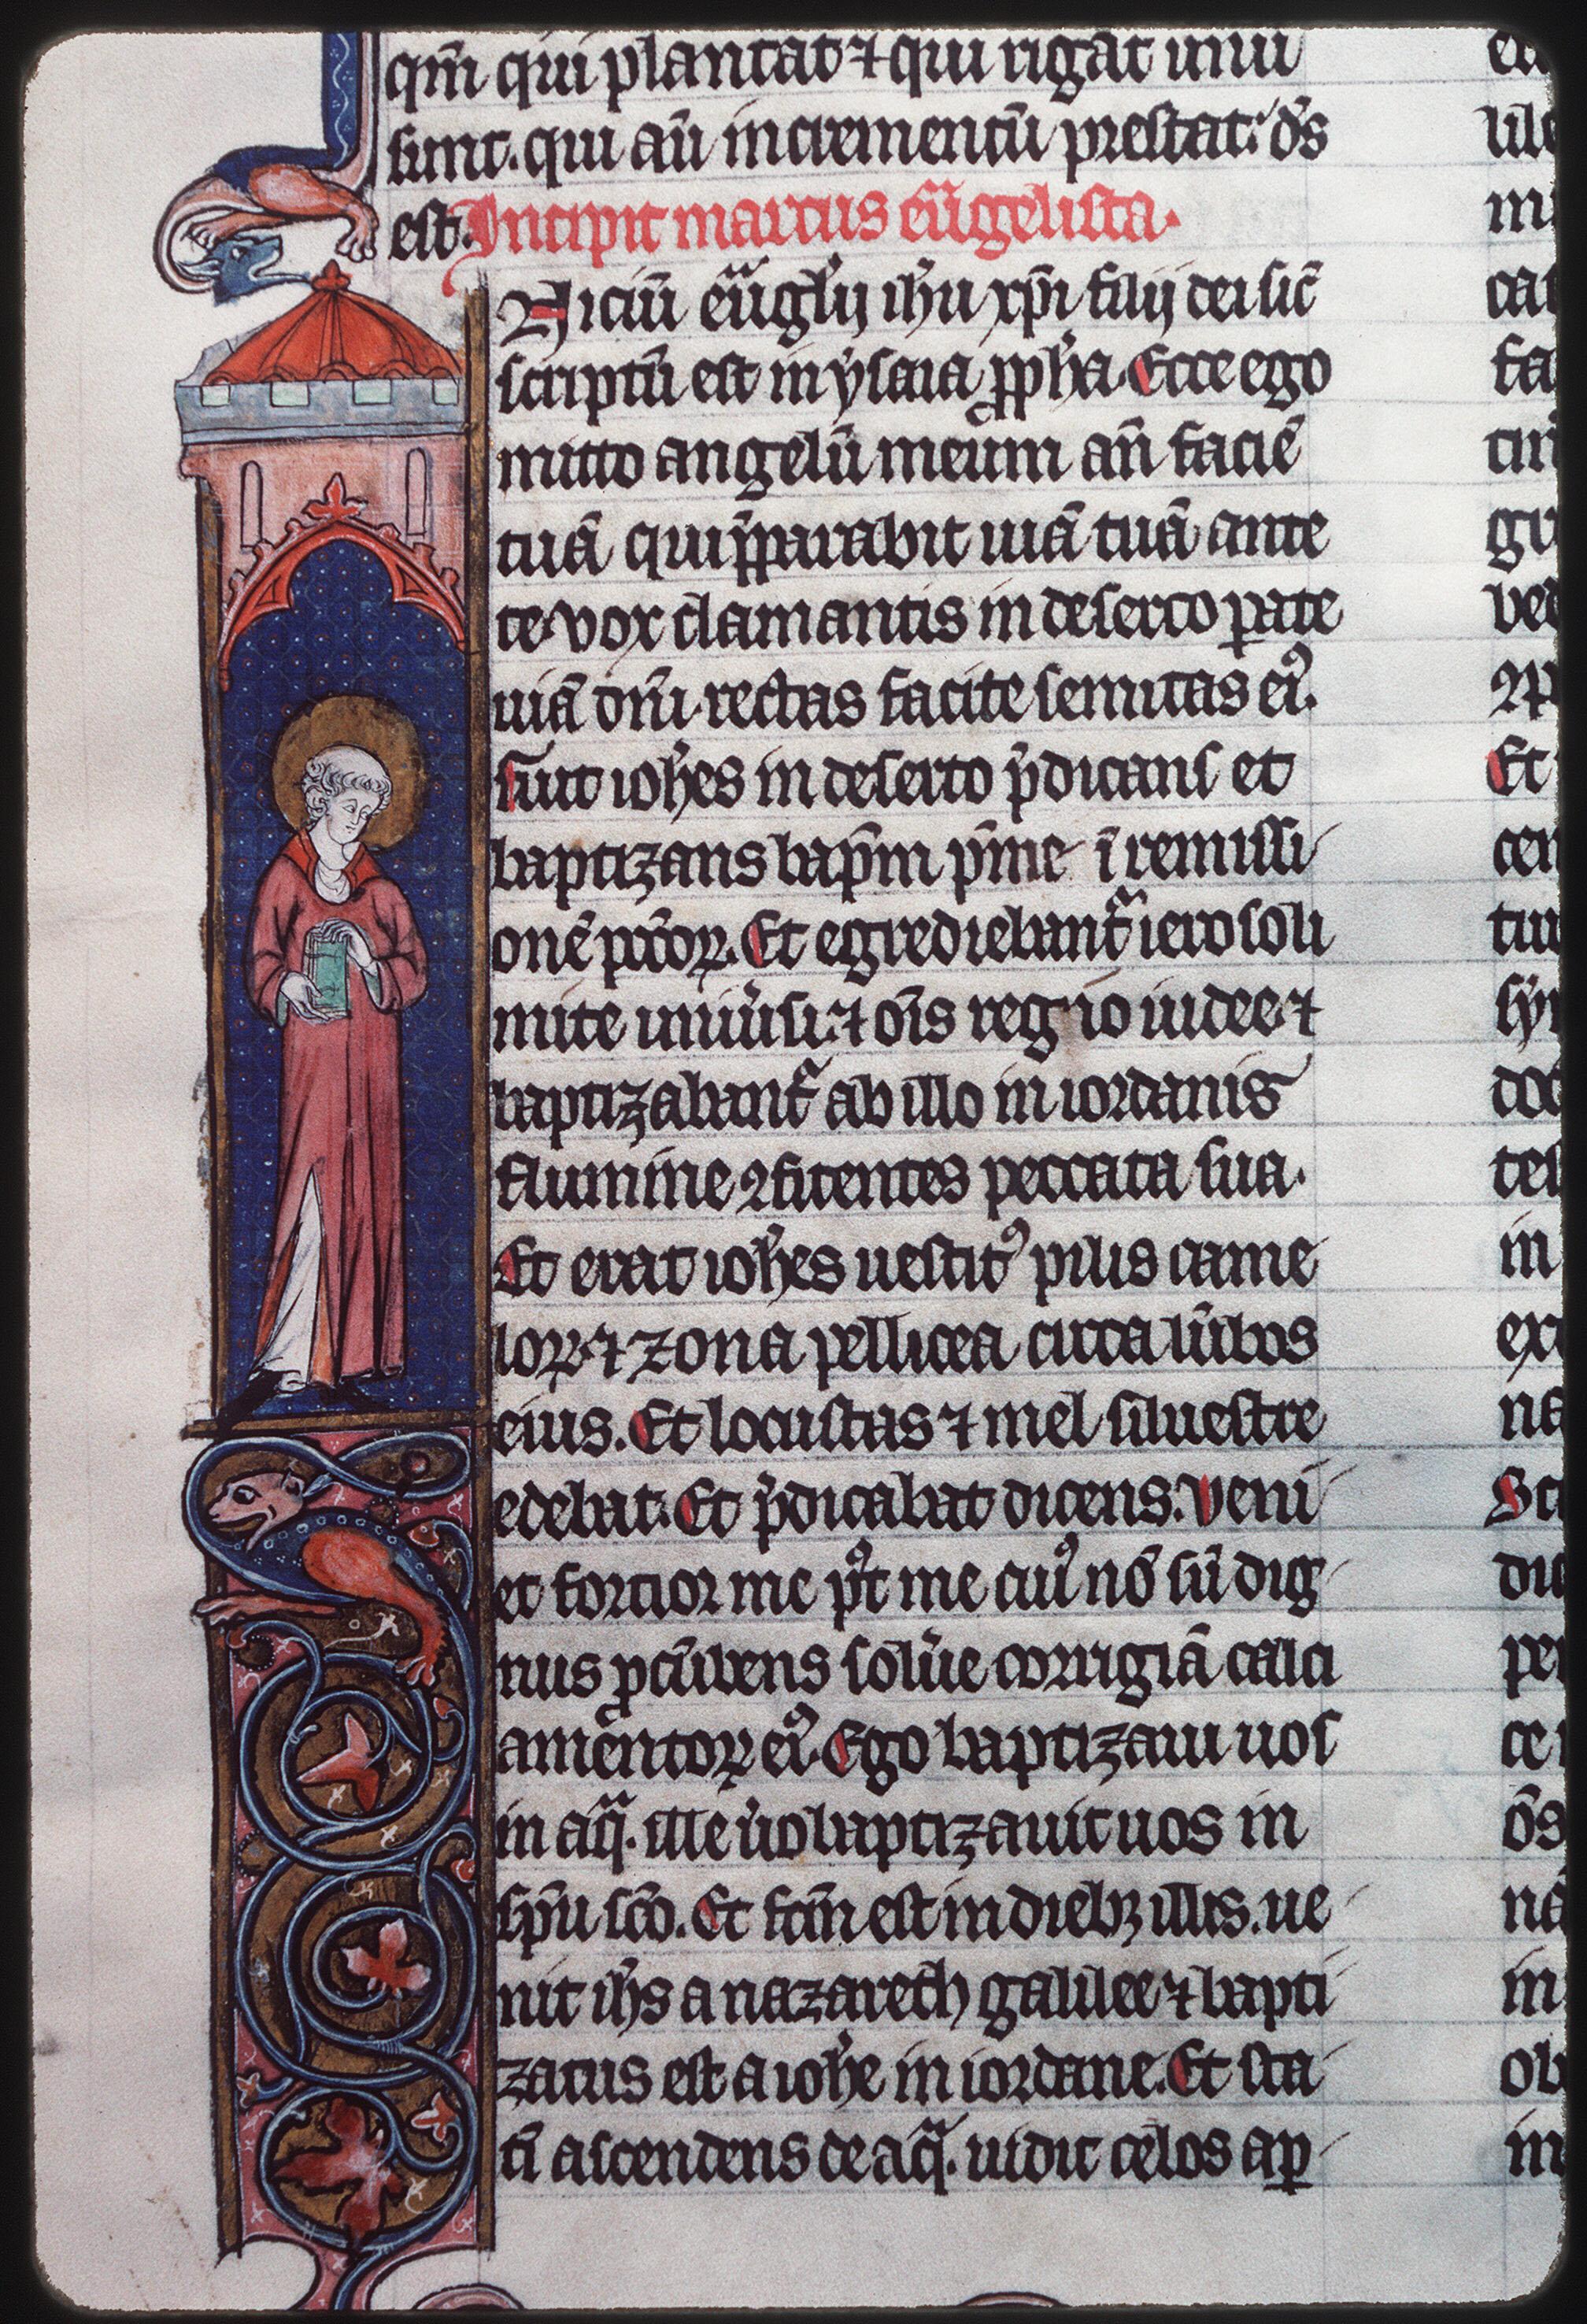 qm̄ qui plantat ⁊ qui rigat unū
sunt. qui au̅ incrementū prestat: ds̄
est. Incipit marcus eu̅ᵃgelista.
Niciū eu̅ᵃglij ih̄u xp̄i filij dei sic̄
scriptū est in ysaia ꝓph̄a. Ecce ego
mitto angelū meum an̄ faciē
tuā qui p̄parabit uiā tuā ante
te vox clamantis in deserto ꝑate
uiā dn̄i rectas facite semitas eiꝰ.
fuit ioh̄es in deserto p̄dicans et
baptizans bap̄m pn̄ie ī remissi
onē pctōꝝ. Et egrediebant᷑ ierosoli
mite uniu̓si: ⁊ oīs regio iudee ⁊
baptizabant᷑ ab illo in iordanis
flumine ꝯfitentes peccata sua.
Et erat ioh̄es uestitꝰ pilis came
loꝝ ⁊ zona pellicea circa lūbos
eius. Et locustas ⁊ mel siluestre
edebat. Et p̄dicabat dicens. veni
et fortior me pꝰt me cuiꝰ nō sū dig
nus ꝓcūbens solu̓e corrigiā calci
amentoꝝ eiꝰ. Ego baptizaui uos
in aqᵃ. ille u̓o baptizauit uos in
sp̄u sc̄o. Et fcm̄ est in diebꝫ illis. ue
nit ih̄s a nazareth galilee ⁊ bapti
zatus est a ioh̄e in iordane. Et sta
tī ascendens de aqᵃ. uidit celos aꝑ
Et